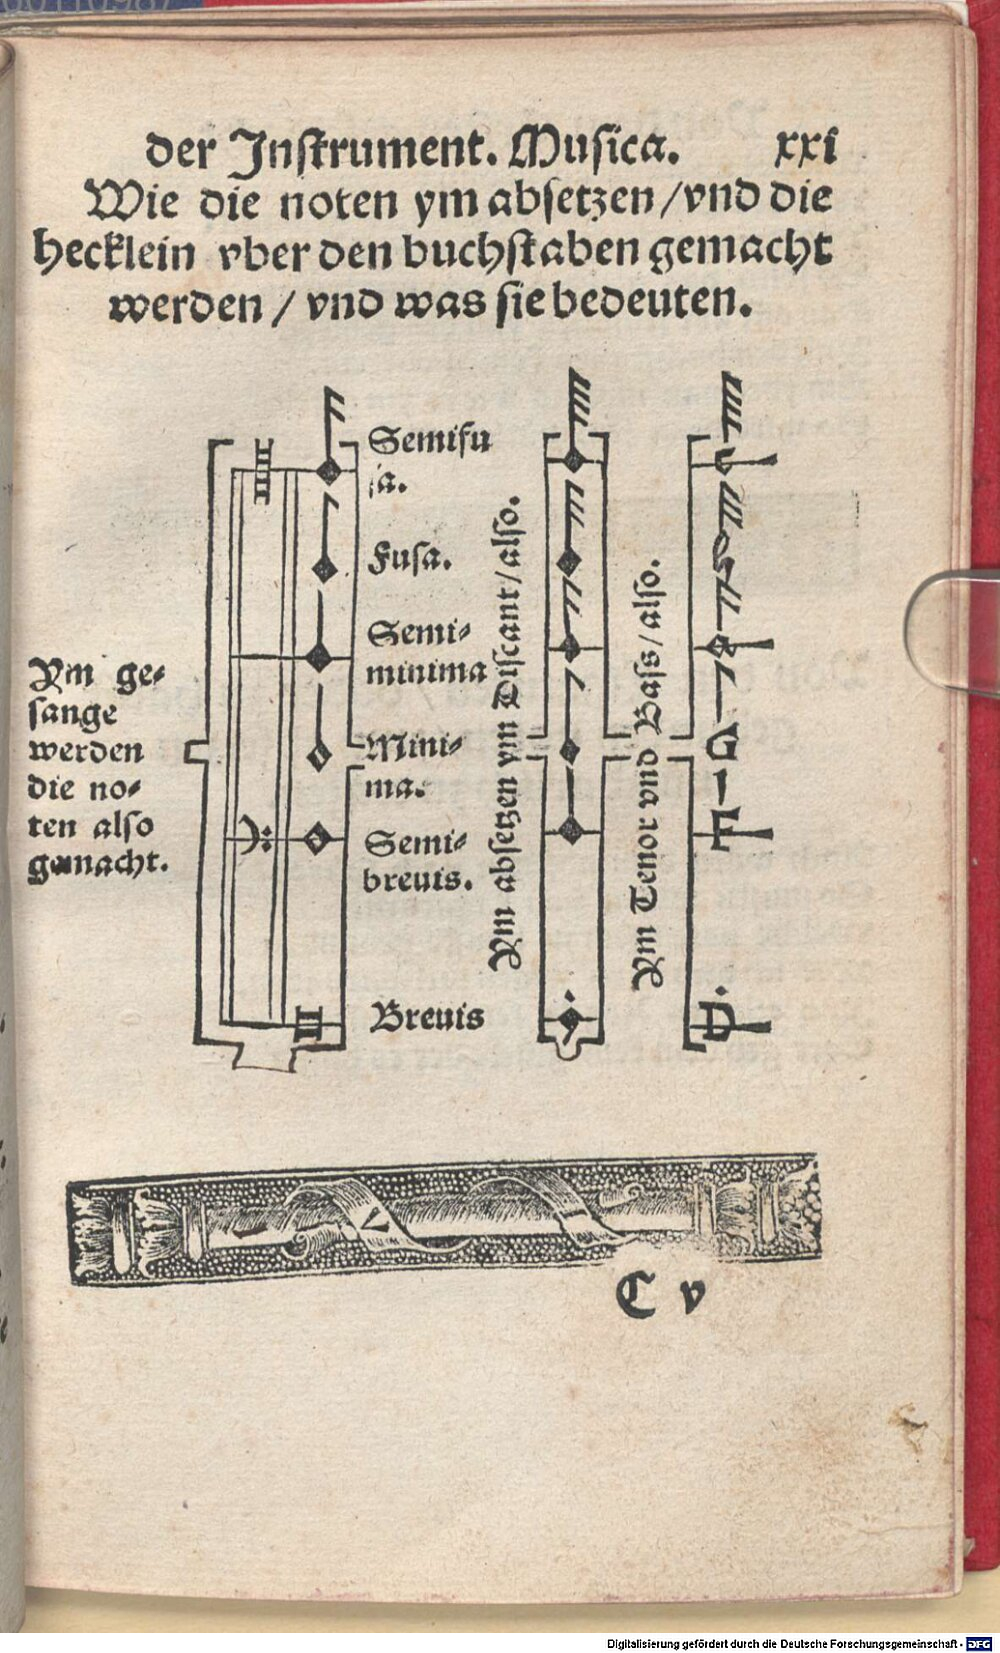 der Inſtrument. Muſica. xxi
Wie die noten ym abſetzen / vnd die
hecklein vber den buchſtaben gemacht
werden / vnd was ſie bedeuten.
Semifu
ſa.
Fuſa.
Semi⸗
minima
Mini⸗
ma.
Semi⸗
breuis.
Breuis
Ym ge⸗
ſange
werden
die no⸗
ten alſo
gemacht.
Ym abſetzen ym Diſcant / alſo.
Ym Tenor vnd Baſs / alſo.
G
F
D
C v
Digitalisierung gefördert durch die Deutsche Forschungsgemeinschaft - DFG